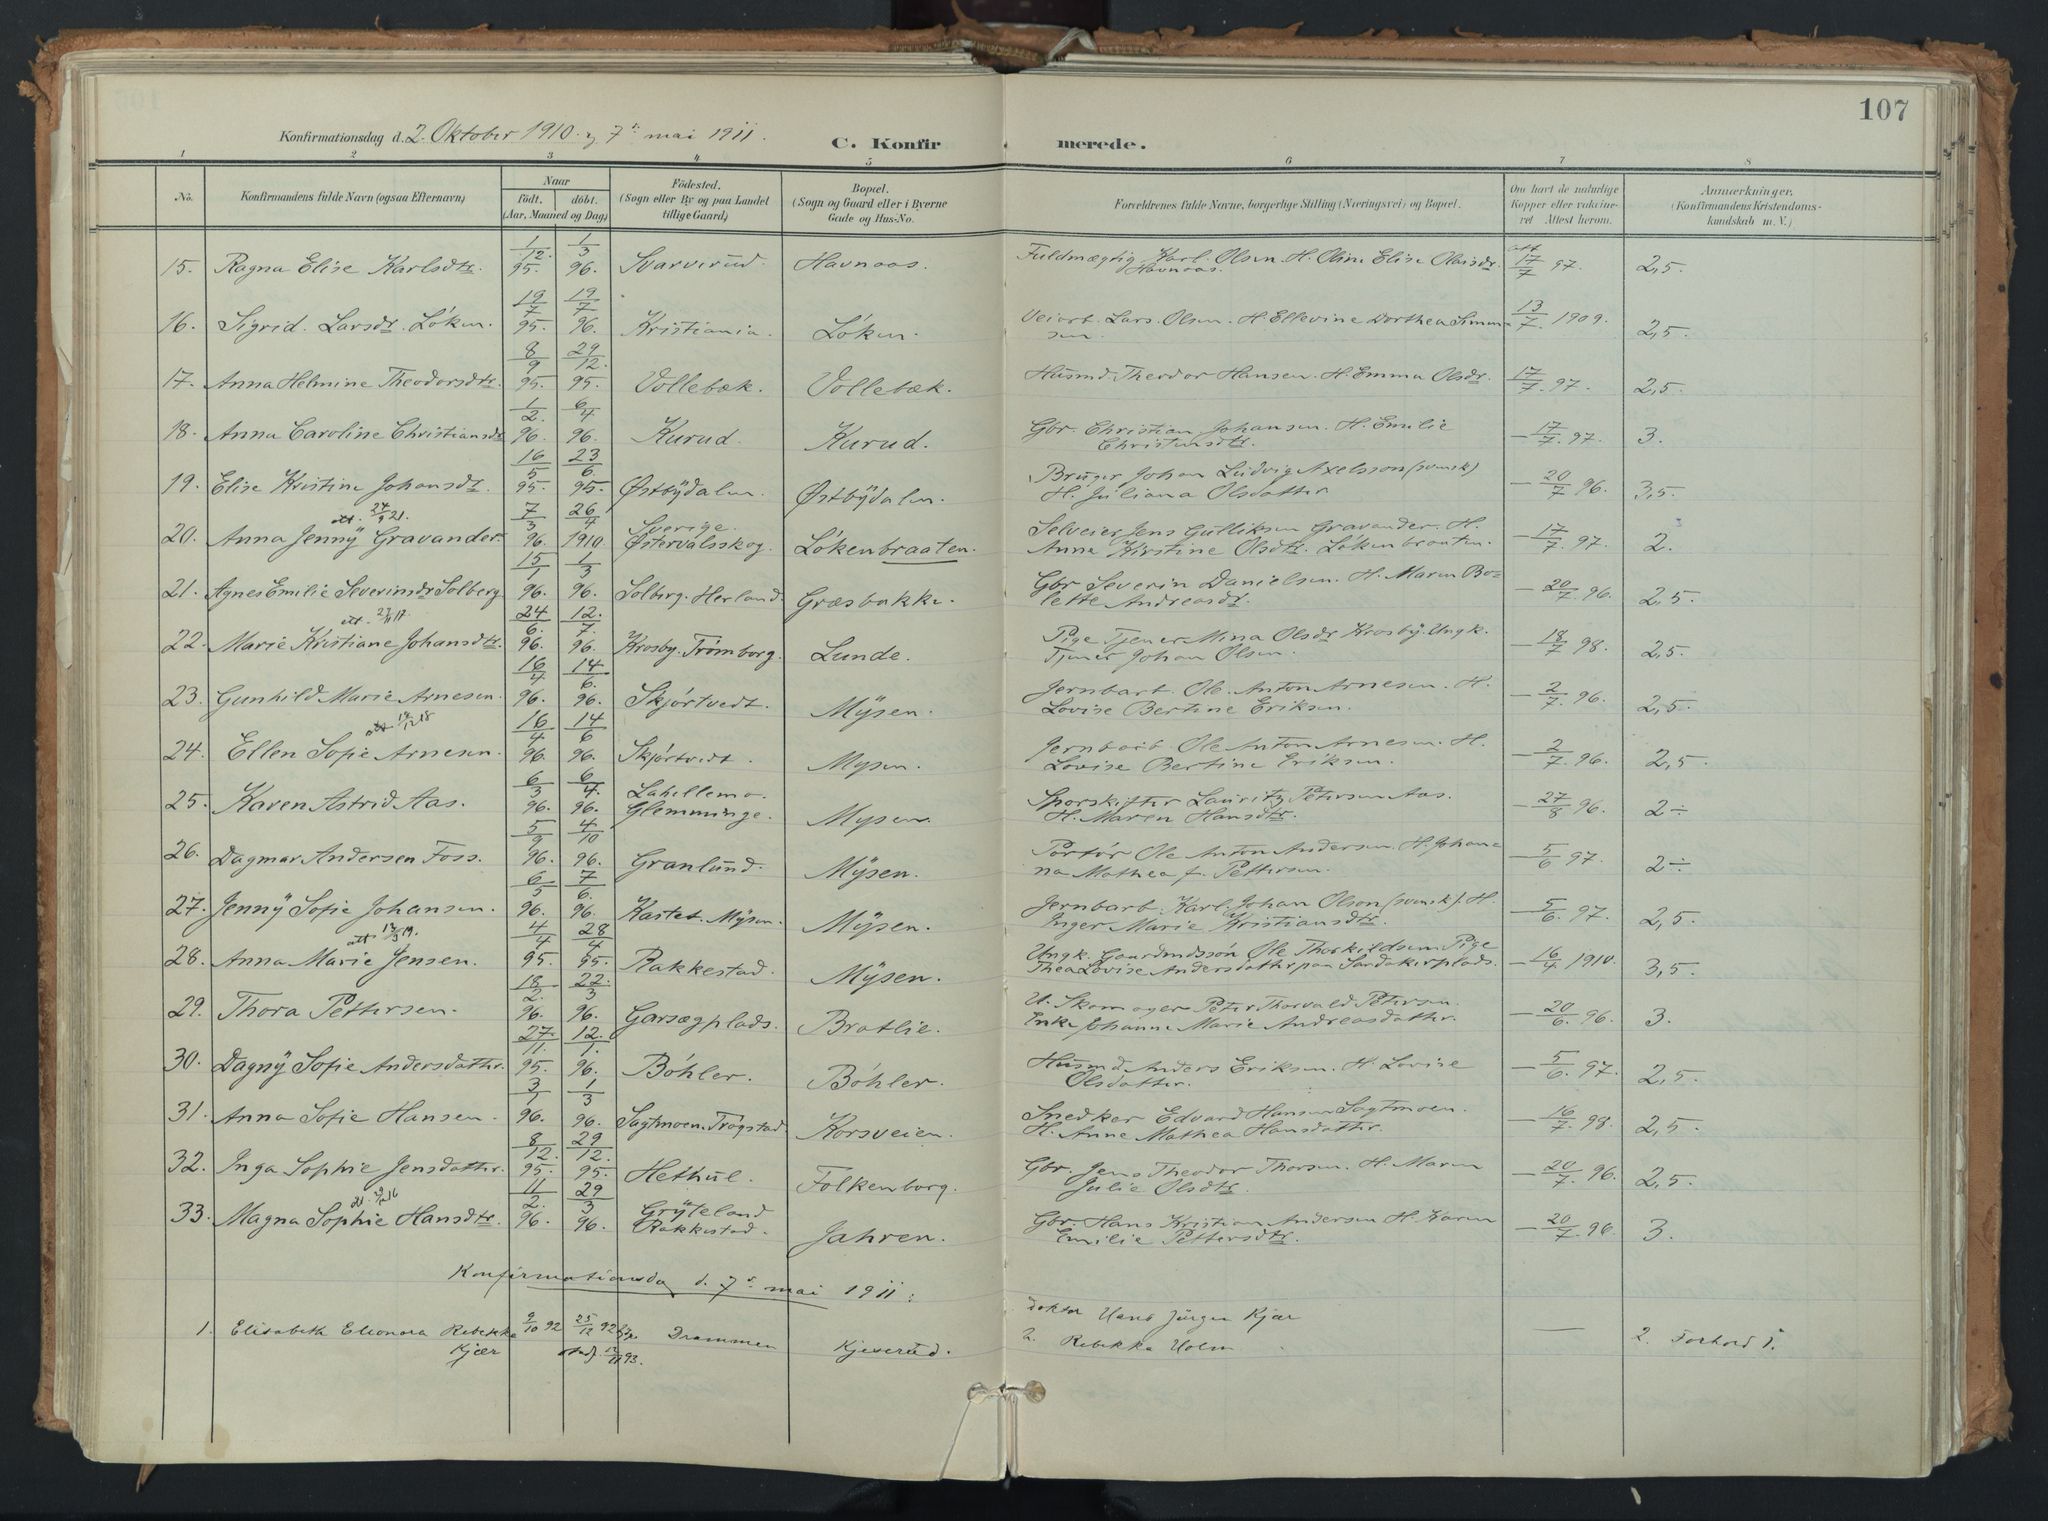 107
Konfirmationsdag d. 2. Oktober 1910 og 7de mai 1911.
C. Konfirmerede.
1 2 3 4 5 6 7 8
No. Konfirmandens fulde Navn (ogsaa Efternavn) Naar født. døbt. (Aar, Maaned og Dag) Fødested. (Sogn eller By og paa Landet tillige Gaard) Bopæl. (Sogn og Gaard eller i Byerne Gade og Hus-No. Forældrenes fulde Navne, borgerlige Stilling (Næringsvei) og Bopæl. Om havt de naturlige Kopper eller vaccineret Attest herom. Anmærkninger. (Konfirmandens Kristendomskundskab m. V.)
15. Ragna Elise Karlsdtr. 1/12. 95. 1/3 96. Svarverud. Havnaas. Fuldmægtig Karl Olsen. H. Oline Elise Olaisdr Havnaas. att 17/7 97. 2,5.
16. Sigrid Larsdr. Løken. 19/7 95. 19/7 96. Kristiania. Løken. Veiarb. Lars Olsen. H. Ellevine Dorthea Simensen. 13/7. 1909. 2,5.
17. Anna Helmine Theodorsdtr. 8/9 95. 29/12. 95. Vollebæk. Vollebæk. Husmd. Theodor Hansen. H. Emma Olsdr. 17/7 97. 2,5.
18. Anna Caroline Christiansdtr 1/2. 96. 6/4 96. Kurud. Kurud. Gbr. Christian Johansen. H. Emilie Christensdtr. — 17/7. 97. 3.
19. Elise Kristine Johansdtr. 16/5 95. 23/6. 95. Østbydalen. Østbydalen. Bruger Johan Ludvig Axelsson (svensk) H. Juliana Olsdatter — 20/7 96. 3,5.
att. 24/9 21.
20. Anna Jenny Gravander 7/3 96. 26/4 1910. Sverige. Østervalsskog. Løkenbraaten. Selveier Jens Gulliksen Gravander. H. Anne Kirstine Olsdtr. Løkenbraaten. — 17/7. 97. 2.
21. Agnes Emilie Severinsdr Solberg 15/1 96. 1/3 96. Solberg. Herland. Græsbakke. Gbr Severin Danielsen. H. Maren Bolette Andreasdr. — 20/7. 96. 2,5.
att. 27/11 17.
22. Marie Kristiane Johansdtr. 24/6. 96. 12./7. 96. Krosby. Trømborg. Lunde. Pige Tjener Mina Olsdr Krosby. Ungk. Tjener Johan Olsen. — 18/7 98. 2,5.
23. Gunhild Marie Arnesen. 16/4 96. 14/6. 96. Skjørtvedt. Mysen. Jernbarb. Ole Anton Arnesen. H. Lovise Bertine Eriksen. — 2/7. 96. 2,5.
24. Ellen Sofie Arnesen. 16/4 96. 14/6 96. Skjørtvedt. Mysen. Jernbarb. Ole Anton Arnesen. H. Lovise Bertine Eriksen. — 2/7. 96. 2,5.
25. Karen Astrid Aas. 6/3 96. 6/4. 96. Lahellemo. Glemminge. Mysen. Sporskifter Lauritz Petersen Aas. H. Maren Hansdtr. — 27/8 96. 2÷
26. Dagmar Andersen Foss. 5/9 96. 4/10 96. Granlund. Mysen. Portør Ole Anton Andersen. H. Johanna Mathea f. Pettersen. — 5/6 97. 2÷
27. Jenny Sofie Johansen. 6/5 96. 7/6. 96. Kastet. Mysen. Mysen. Jernbarb. Karl Johan Olson (svensk). H. Inger Marie Kristiansdtr. — 5/6. 97. 2,5.
28. Anna Marie Jensen. 4/4 95. 28/4 95. Rakkestad. Mysen. Ungk. Gaardmdssøn Ole Thorkildsen. Pige Thea Lovise Andersdatter paa Sandakerplads. — 16/4 1910. 3,5.
29. Thora Pettersen. 18/2. 96. 22./3 96. Garsægplads. Bratlie. U. Skomager Peter Thorvald Petersen. Enke Johanne Marie Andreasdatter. — 20/6 96. 3.
30. Dagny Sofie Andersdatter. 27./11. 95. 12./1. 96. Bøhler. Bøhler. Husmd Anders Eriksen. H. Lovise Olsdatter. — 5/6. 97. 2,5.
31. Anna Sofie Hansen. 3/1 96. 1/3 96. Sagtmoen. Trøgstad. Korsveien. Snedker Edvard Hansen Sagtmoen. H. Anne Mathea Hansdatter. — 16/7. 98. 2,5.
32. Inga Sophie Jensdatter. 8/12. 95. 29/12. 95. Hethul. Folkenborg. Gbr. Jens Theodor Thorsen. H. Maren Julie Olsdtr. — 20/7. 96. 2,5.
33. Magna Sophie Hansdtr. 11/2. 96. 29/3 96. Gryteland Rakkestad. Jahren. Gbr. Hans Kristian Andersen H. Karen Emilie Pettersdtr. — 20/7 96. 3.
Konfirmationsda d. 7de mai 1911:
1. Elisabeth Eleonora Rebekka Kjær 9/10 92 25/12 92 Drammen Kjeserud. doktor Hans Jürgen Kjær H. Rebekka Holm — 2. Forhold